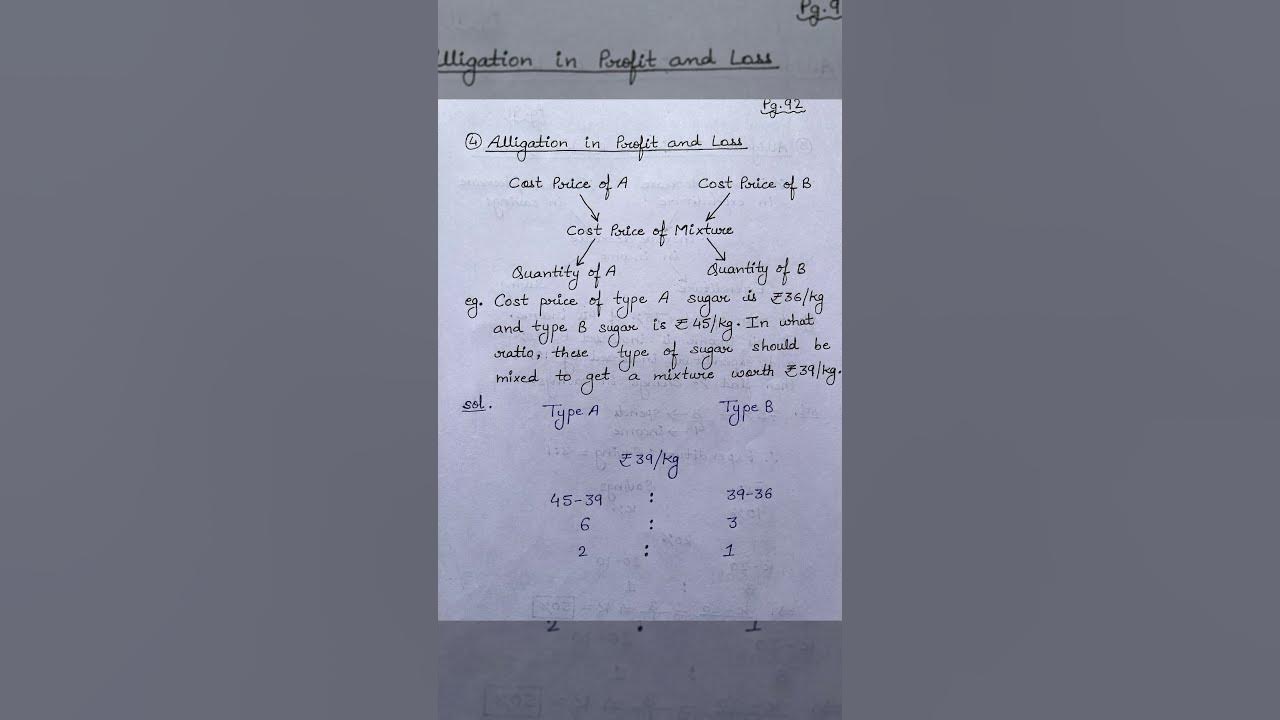 Pg.9
lligation in Profit and Loss
Pg.92
④ Alligation in Profit and Loss
Cost Price of A Cost Price of B
Cost Price of Mixture
Quantity of A Quantity of B
eg. Cost price of type A sugar is ₹36/kg
and type B sugar is ₹45/kg. In what
ratio, these type of sugar should be
mixed to get a mixture worth ₹39/kg.
sol. Type A Type B
₹39/kg
45-39 : 39-36
6 : 3
2 : 1
2 : 1